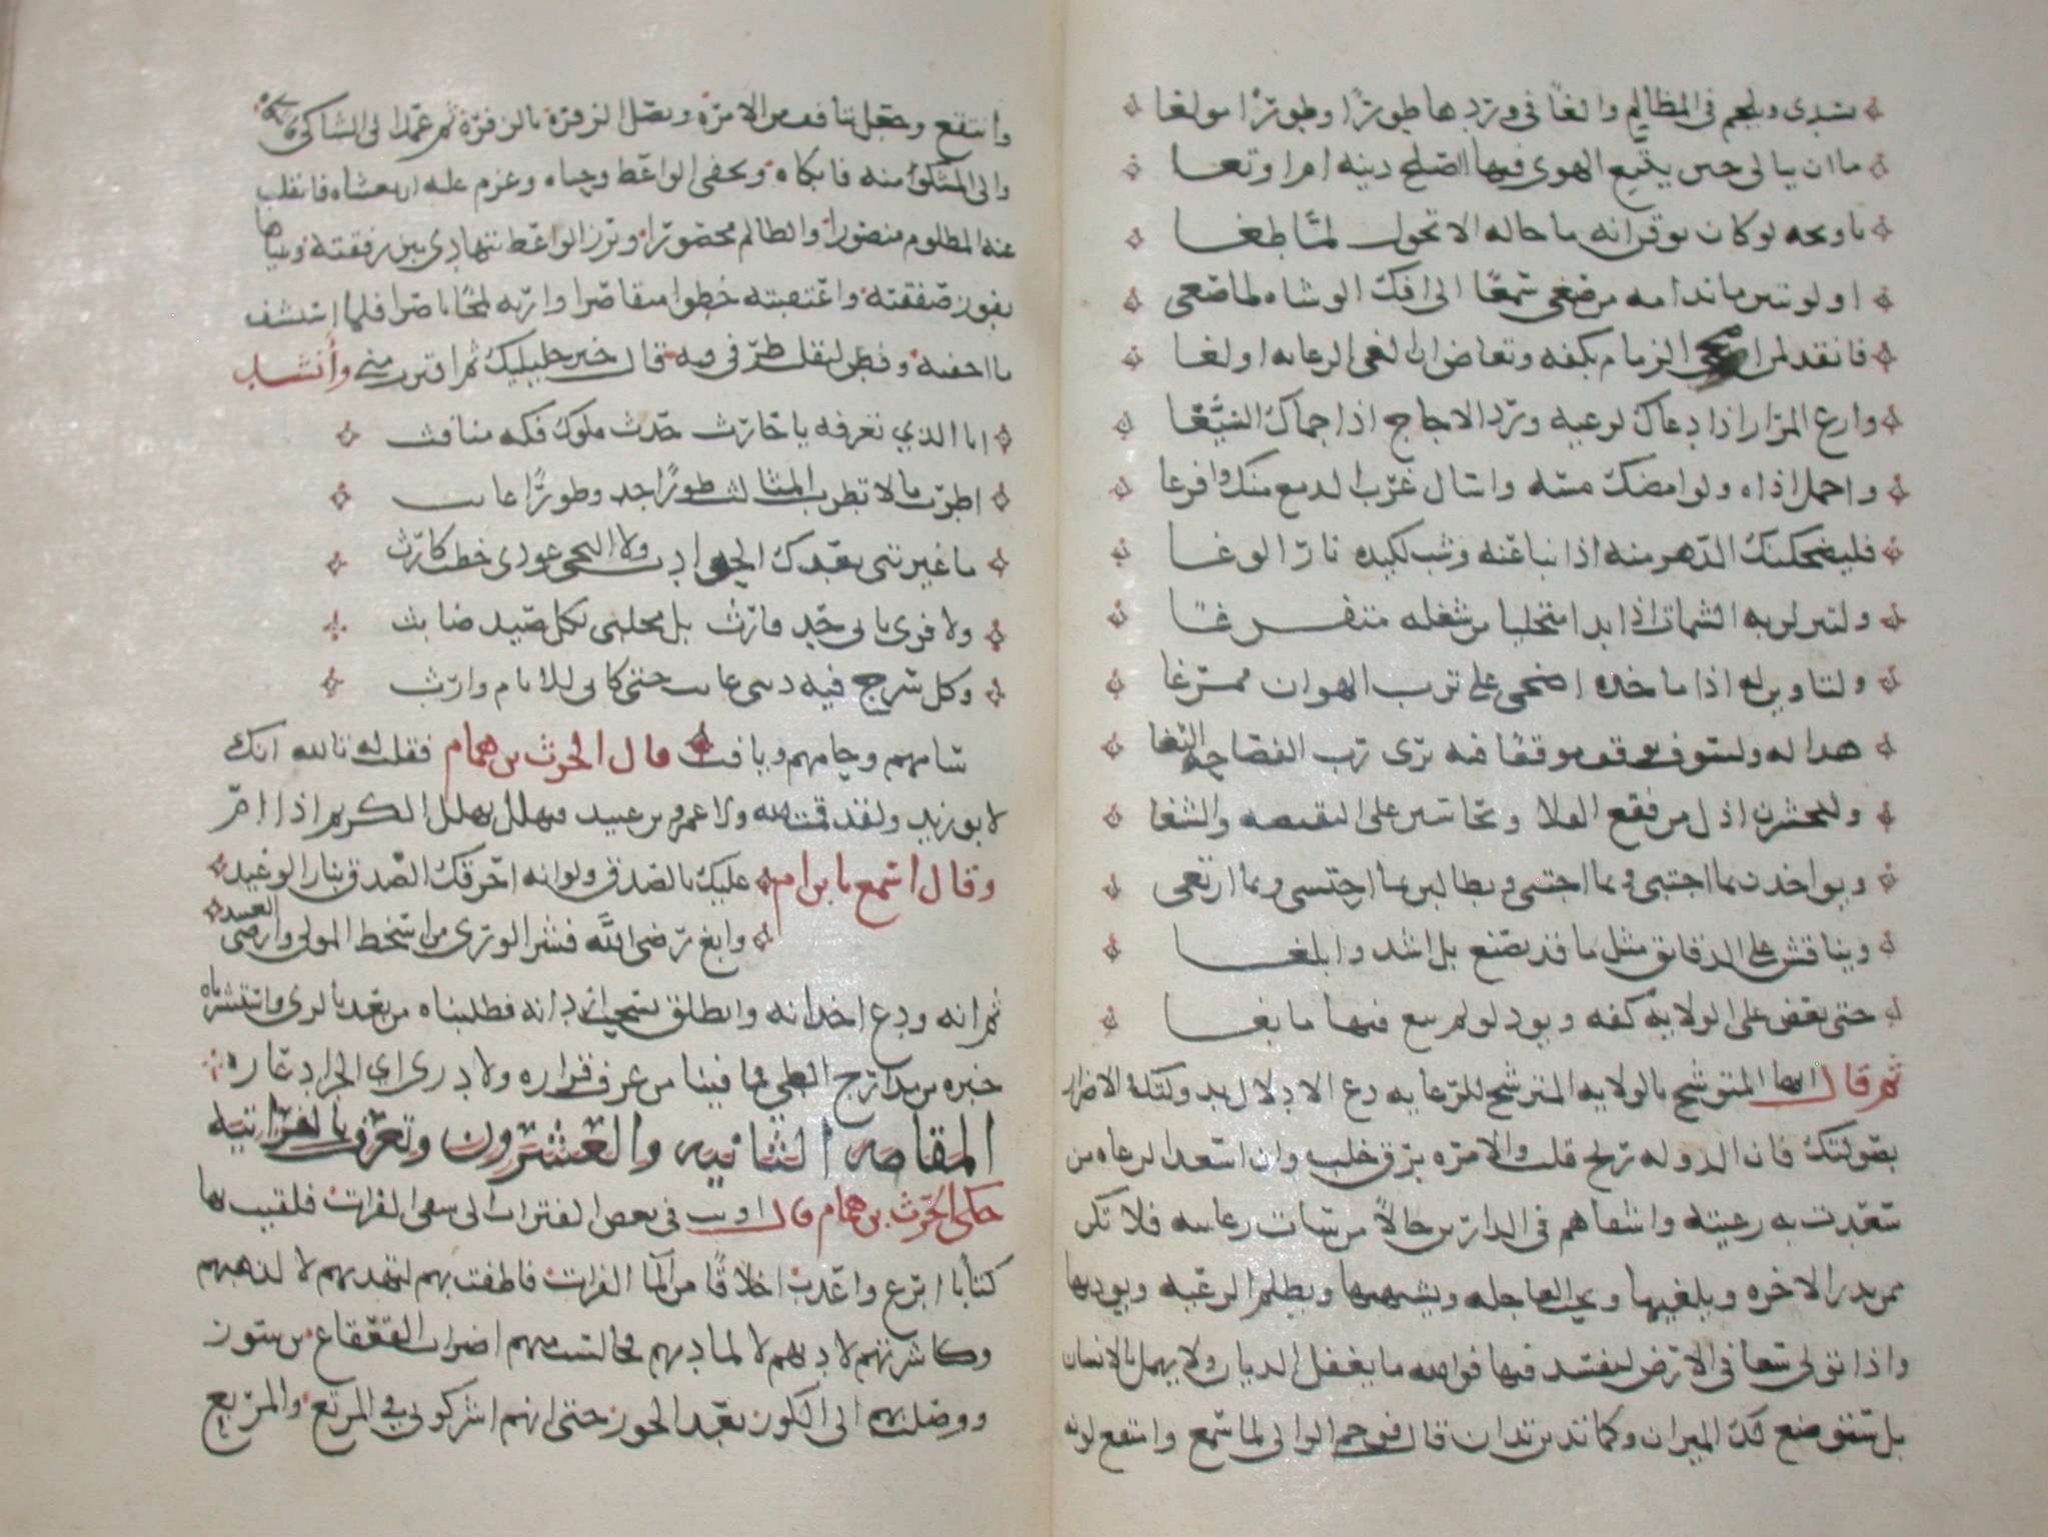 يسدى ويلحم في المظالم والغا في وردها طورا وطورا مولغا
ما ان يبالي حين يتبع الهوى فيها اصلح دينه ام اوتغا
يا ويحه لو كان يوقن انه ما حاله الا تحول لما طغا
او لو تبين ما ندامه من صغى سمعا الى افك الوشاه لما صغى
فانقد لمن اضحى الزمام بكفه وتغاض ان الغى الرعايه او لغا
وارع المرار اذا دعاك لرعيه ورد الاجاج اذا حماك السيغا
واحمل اذاه ولو امضك مسه واسال غرب الدمع منك وافرغا
فليضحكنك الدهر منه اذا نبا عنه وشب لكيده نار الوغا
ولينزلن به الشمات اذا بدا متخليا من شغله متفرغا
ولتاوين له اذا ما خده اضحى على ترب الهوان ممرغا
هذا له ولسوف يوقف موقفا فيه يرى رب الفصاحه الثغا
وليحشرن اذل من فقع الفلا ويحاسبن على النقيصه والشغا
ويواخذن بما اجتبى وبما اجتنى ويطالبن بما احتسى وبما ارتغى
ويناقش على الدقائق مثل ما قد يصنع بل اشد وابلغا
حتى يعض على الولايه كفه ويود لو لم يبغ فيها ما بغا
ثم قال ايها المتوشح بالولايه المترشح للرعايه دع الادلال بدولتك والاغترار
بصولتك فان الدوله ريح قلب والامره برق خلب وان اسعد الرعاه من
سعدت به رعيته واشقاهم في الدارين حالا من ساءت رعايته فلا تكن
ممن يذر الاخره ويلغيها ويحب العاجله ويبتغيها ويظلم الرعيه ويوذيها
واذا تولى سعا في الارض ليفسد فيها فوالله ما يغفل الديان ولا يهمل يا انسان
بل سيوضع لك الميزان وكما تدين تدان قال فوجم الوالي لما سمع وامتقع لونه
وانتقع وجعل يتافف من الامره ويصل الزفرة بالزفرة ثم عمد الى الشاكي فاشكاه
والى المشكو منه فابكاه ويحفى الواعظ وحباه وعزم عليه ان يغشاه فانقلب
عنه المظلوم منصورا والظالم محصورا وبرز الواعظ يتهادى بين رفقته ويتباهى
بفوز صفقته واعتقبته خطوا متقاصرا واريه لمحا باصرا فلما استشف
ما اخفيه وفطن لتقلب طرفي فيه قال خير دليليك ثم اقترب مني وأنشد
انا الذي تعرفه يا حارث حدث ملوك فكه منافث
اطرب ما لا تطرب المثالث طورا اجد وطورا عابث
ما غيرتني بعدك الحوادث ولا التحى عودي خطب كارث
ولا فرى نابي حد فارث بل مخلبى بكل صيد ضابث
وكل سرح فيه ذئبي عابث حتى كاني للانام وارث
سامهم وحامهم ويافث قال الحرث بن همام فقلت له تالله انك
لابو زيد ولقد قمت لله ولا عمرو بن عبيد فهلل تهلل الكريم اذا ام
وقال استمع يا بن ام عليك بالصدق ولو انه احرقك الصدق بنار الوعيد
وابغ رضى الله فشر الورى من اسخط المولى وارضى العبيد
ثم انه ودع اخدانه وانطلق يسحب اردانه فطلبناه من بعد بالرى واستنشرناه
خبره من مدارج الطي فما فينا من عرف قراره ولا درى اي الجراد عاره
المقامه الثانيه والعشرون وتعرف بالفراتيه
حكى الحرث بن همام قال اويت في بعض الفترات الى سقى الفرات فلقيت بها
كتابا ابرع واعذب اخلاقا من الما الفرات فاطفت بهم لتهذبهم لا لذهبهم
وكاثرتهم لادبهم لا لمادبهم فجالست منهم اضراب القعقاع بن شور
ووصلت بهم الى الكور بعد الحور حتى انهم اشركوني في المرتع والمربع